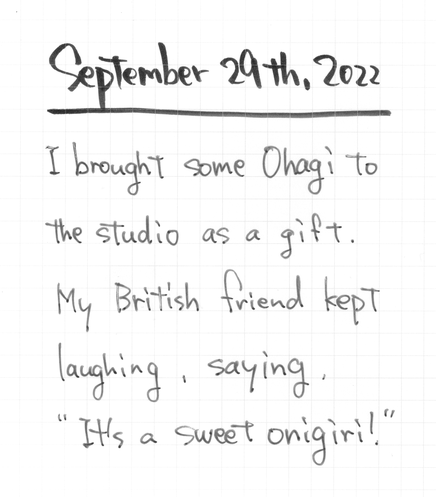 September 29th, 2022
I brought some Ohagi to
the studio as a gift.
My British friend kept
laughing, saying,
"It's a sweet onigiri!"